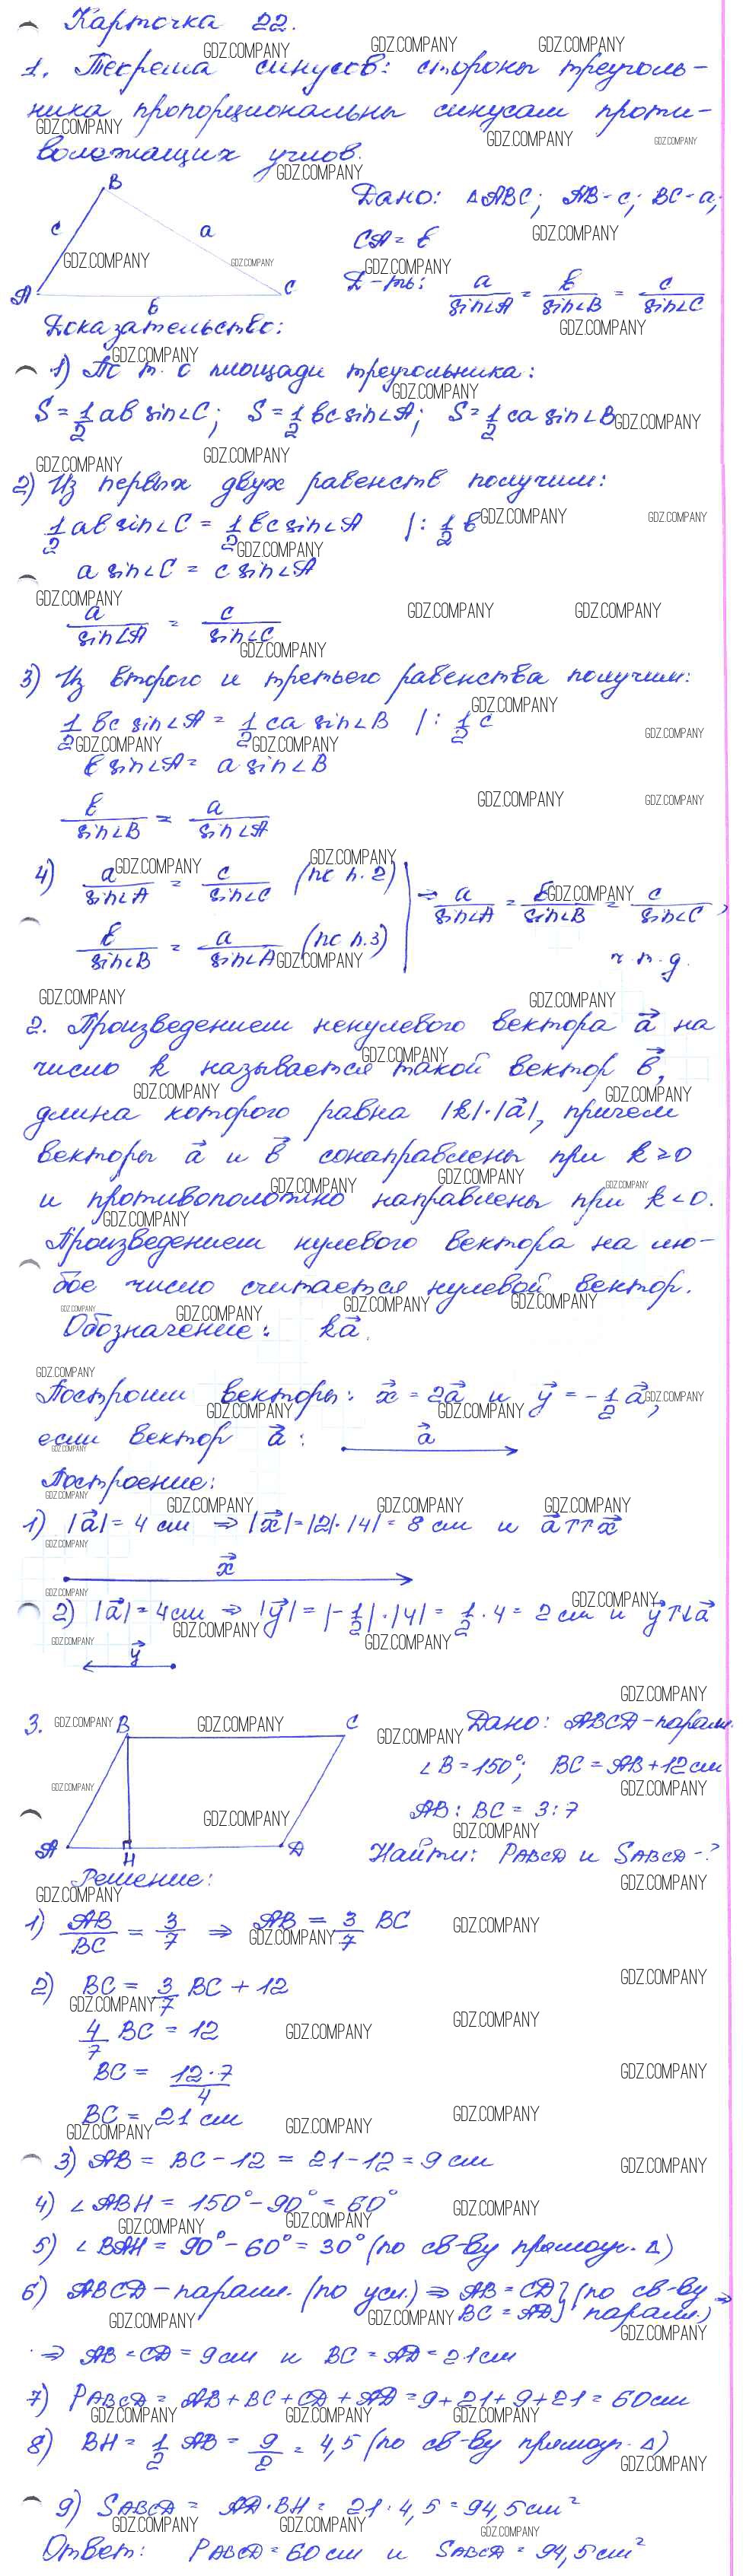 Карточка 22.
1. Теорема синусов: стороны треуголь-
ника пропорциональны синусам проти-
волежащих углов.
Дано: △ABC; AB=c; BC=a;
CA=b
Д-ть: a/sin∠A = b/sin∠B = c/sin∠C
B
c
a
A
b
C
Доказательство:
1) По т. о площади треугольника:
S = 1/2 ab sin∠C; S = 1/2 bc sin∠A; S = 1/2 ca sin∠B
2) Из первых двух равенств получим:
1/2 ab sin∠C = 1/2 bc sin∠A | : 1/2 b
a sin∠C = c sin∠A
a/sin∠A = c/sin∠C
3) Из второго и третьего равенства получим:
1/2 bc sin∠A = 1/2 ca sin∠B | : 1/2 c
b sin∠A = a sin∠B
b/sin∠B = a/sin∠A
4) a/sin∠A = c/sin∠C (по п. 2) ⇒ a/sin∠A = b/sin∠B = c/sin∠C,
b/sin∠B = a/sin∠A (по п.3)
ч.т.д.
2. Произведением ненулевого вектора a⃗ на
число k называется такой вектор b⃗,
длина которого равна |k|·|a⃗|, причем
векторы a⃗ и b⃗ сонаправлены при k≥0
и противоположно направлены при k<0.
Произведением нулевого вектора на лю-
бое число считается нулевой вектор.
Обозначение: ka⃗.
Построим векторы: x⃗ = 2a⃗ и y⃗ = -1/2 a⃗,
если вектор a⃗:
a⃗
Построение:
1) |a⃗| = 4 см ⇒ |x⃗| = |2|·|4| = 8 см и a⃗↑↑x⃗
x⃗
2) |a⃗| = 4см ⇒ |y⃗| = |-1/2|·|4| = 1/2 · 4 = 2 см и y⃗↑↓a⃗
y⃗
3.
B
C
A
H
D
Дано: ABCD-парал.
∠B = 150°; BC = AB+12 см
AB : BC = 3:7
Найти: PABCD и SABCD -?
Решение:
1) AB/BC = 3/7 ⇒ AB = 3/7 BC
2) BC = 3/7 BC + 12
4/7 BC = 12
BC = 12·7/4
BC = 21 см
3) AB = BC - 12 = 21 - 12 = 9 см
4) ∠ABH = 150° - 90° = 60°
5) ∠BAH = 90° - 60° = 30° (по св-ву прямоуг. △)
6) ABCD - парал. (по усл.) ⇒ AB = CD } (по св-ву ⇒
BC = AD } парал.)
⇒ AB = CD = 9 см и BC = AD = 21 см
7) PABCD = AB + BC + CD + AD = 9+21+9+21 = 60 см
8) BH = 1/2 AB = 9/2 = 4,5 (по св-ву прямоуг. △)
9) SABCD = AD·BH = 21·4,5 = 94,5 см²
Ответ: PABCD = 60 см и SABCD = 94,5 см²
GDZ.COMPANY